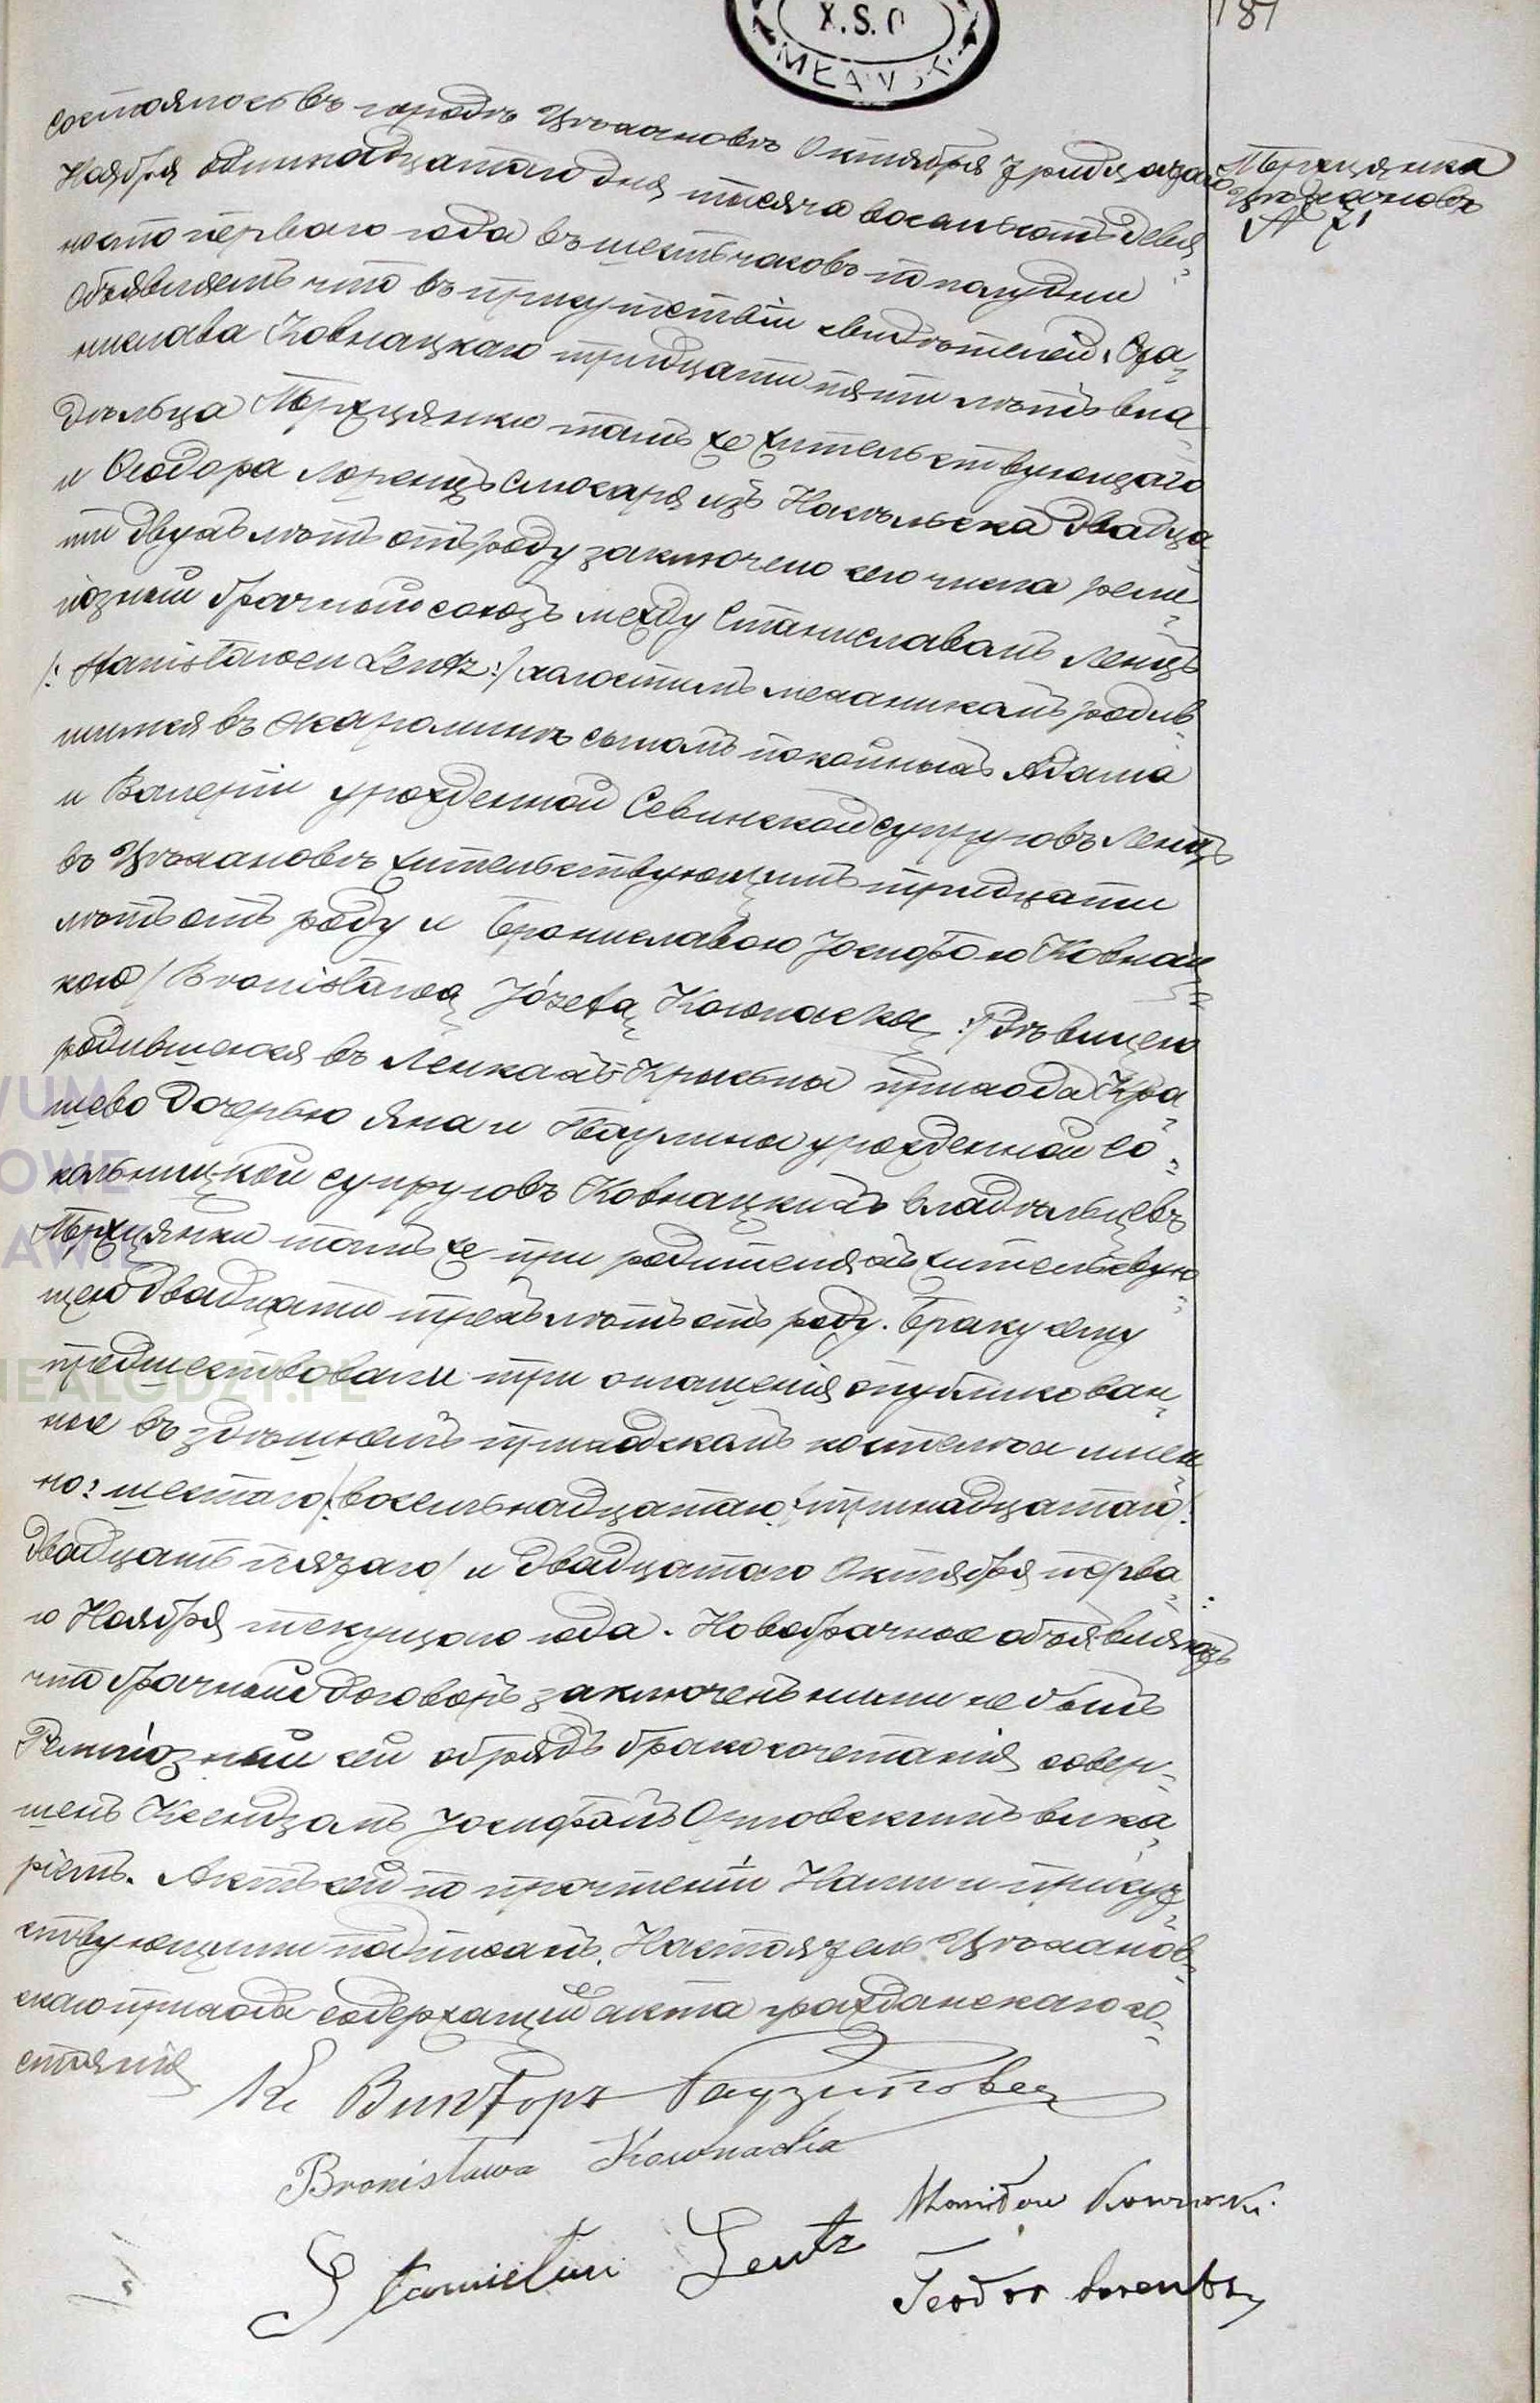 181
X.S.C
MŁAWSK
Мержцянка
Цѣхановъ
№ 71
Состоялось въ городѣ Цѣхановѣ Октября тридцатаго
Ноября одинадцатаго дня тысяча восемьсотъ девя-
носто перваго года въ шесть часовъ по полудни
Объявляемъ что въ присутствіи свидѣтелей: Ста-
нислава Ковнацкаго тридцати пяти лѣтъ вла-
дѣльца Мержцянки тамъ же жительствующаго
и Ѳеодора Лоренцъ слюсаря изъ Насѣльска двадца-
ти двухъ лѣтъ отъ роду заключено сего числа рели-
гіозный брачный союзъ между Станиславомъ Ленцъ
/: Stanisławem Lentz :/ холостымъ механикомъ родив-
шимся въ Жаролинѣ сыномъ покойныхъ Адама
и Валеріи урожденной Севинской супруговъ Ленцъ
въ Цѣхановѣ жительствующимъ тридцати
лѣтъ отъ роду и Брониславою Іосифою Ковнац-
кою /Bronisławą Józefą Kownacką :/ дѣвицею
родившеюся въ Ленкахъ-Крысны прихода Кра-
шево дочерью Яна и Паулины урожденной Со-
кольницкой супруговъ Ковнацкихъ владѣльцевъ
Мержцянки тамъ же при родителяхъ жительствую-
щею двадцати трехъ лѣтъ отъ роду. Браку сему
предшествовали три оглашенія опубликован-
ные въ здѣшнемъ приходскомъ костелѣ а имен-
но: шестаго /:восемьнадцатаго:/ тринадцатаго /:
двадцать пятаго/ и двадцатаго Октября перва-
го Ноября текущаго года. Новобрачные объявляютъ
что брачный договоръ заключенъ ними не былъ
Религіозный сей обрядъ бракосочетанія совер-
шенъ Ксендзомъ Іосифомъ Орловскимъ вика-
ріемъ. Актъ сей по прочтеніи Нами и присут-
ствующими подписанъ. Настоятель Цѣханов-
скаго прихода содержащій акта гражданскаго со-
стоянія
Кс Викторъ
Bronisława Kownacka
Stanisław Kownacki
Stanisław Lentz
Teodor Lorentz